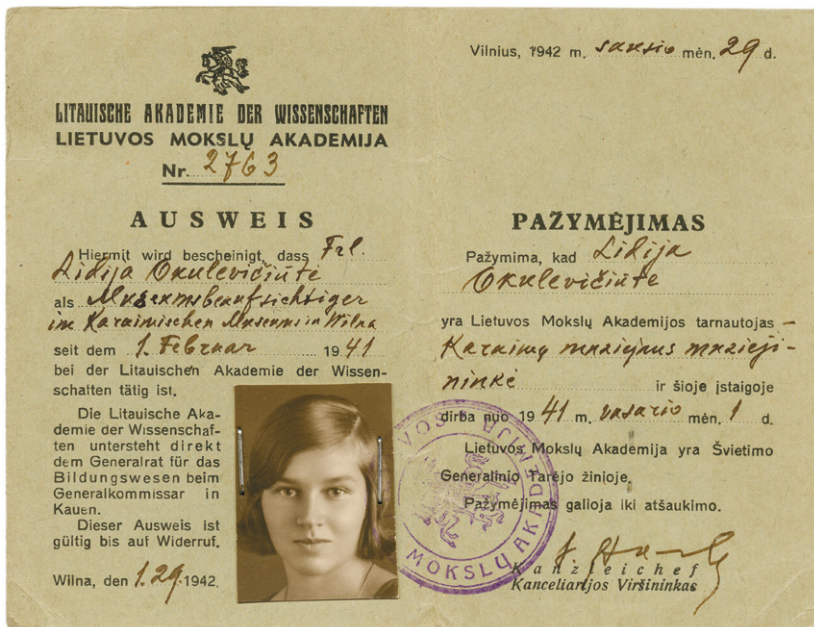 LITAUISCHE AKADEMIE DER WISSENSCHAFTEN
LIETUVOS MOKSLŲ AKADEMIJA
Nr. 2763
AUSWEIS
Hiermit wird bescheinigt, dass Frl.
Lidija Okulevičiūtė
als Museumsbeaufsichtiger
im Karaimischen Museum in Wilna
seit dem 1. Februar 1941
bei der Litauischen Akademie der Wissen-
schaften tätig ist.
Die Litauische Aka-
demie der Wissenschaf-
ten untersteht direkt
dem Generalrat für das
Bildungswesen beim
Generalkommissar in
Kauen.
Dieser Ausweis ist
gültig bis auf Widerruf.
Wilna, den 1.29.1942.
Vilnius, 1942 m. sausio mėn. 29 d.
PAŽYMĖJIMAS
Pažymima, kad Lidija
Okulevičiūtė
yra Lietuvos Mokslų Akademijos tarnautojas –
Karaimų muziejaus muzieji-
ninkė ir šioje įstaigoje
dirba nuo 1941 m. vasario mėn. 1 d.
Lietuvos Mokslų Akademija yra Švietimo
Generalinio Tarėjo žinioje.
Pažymėjimas galioja iki atšaukimo.
Kanzleichef
Kanceliarijos Viršininkas
MOKSLŲ AKADEMIJA